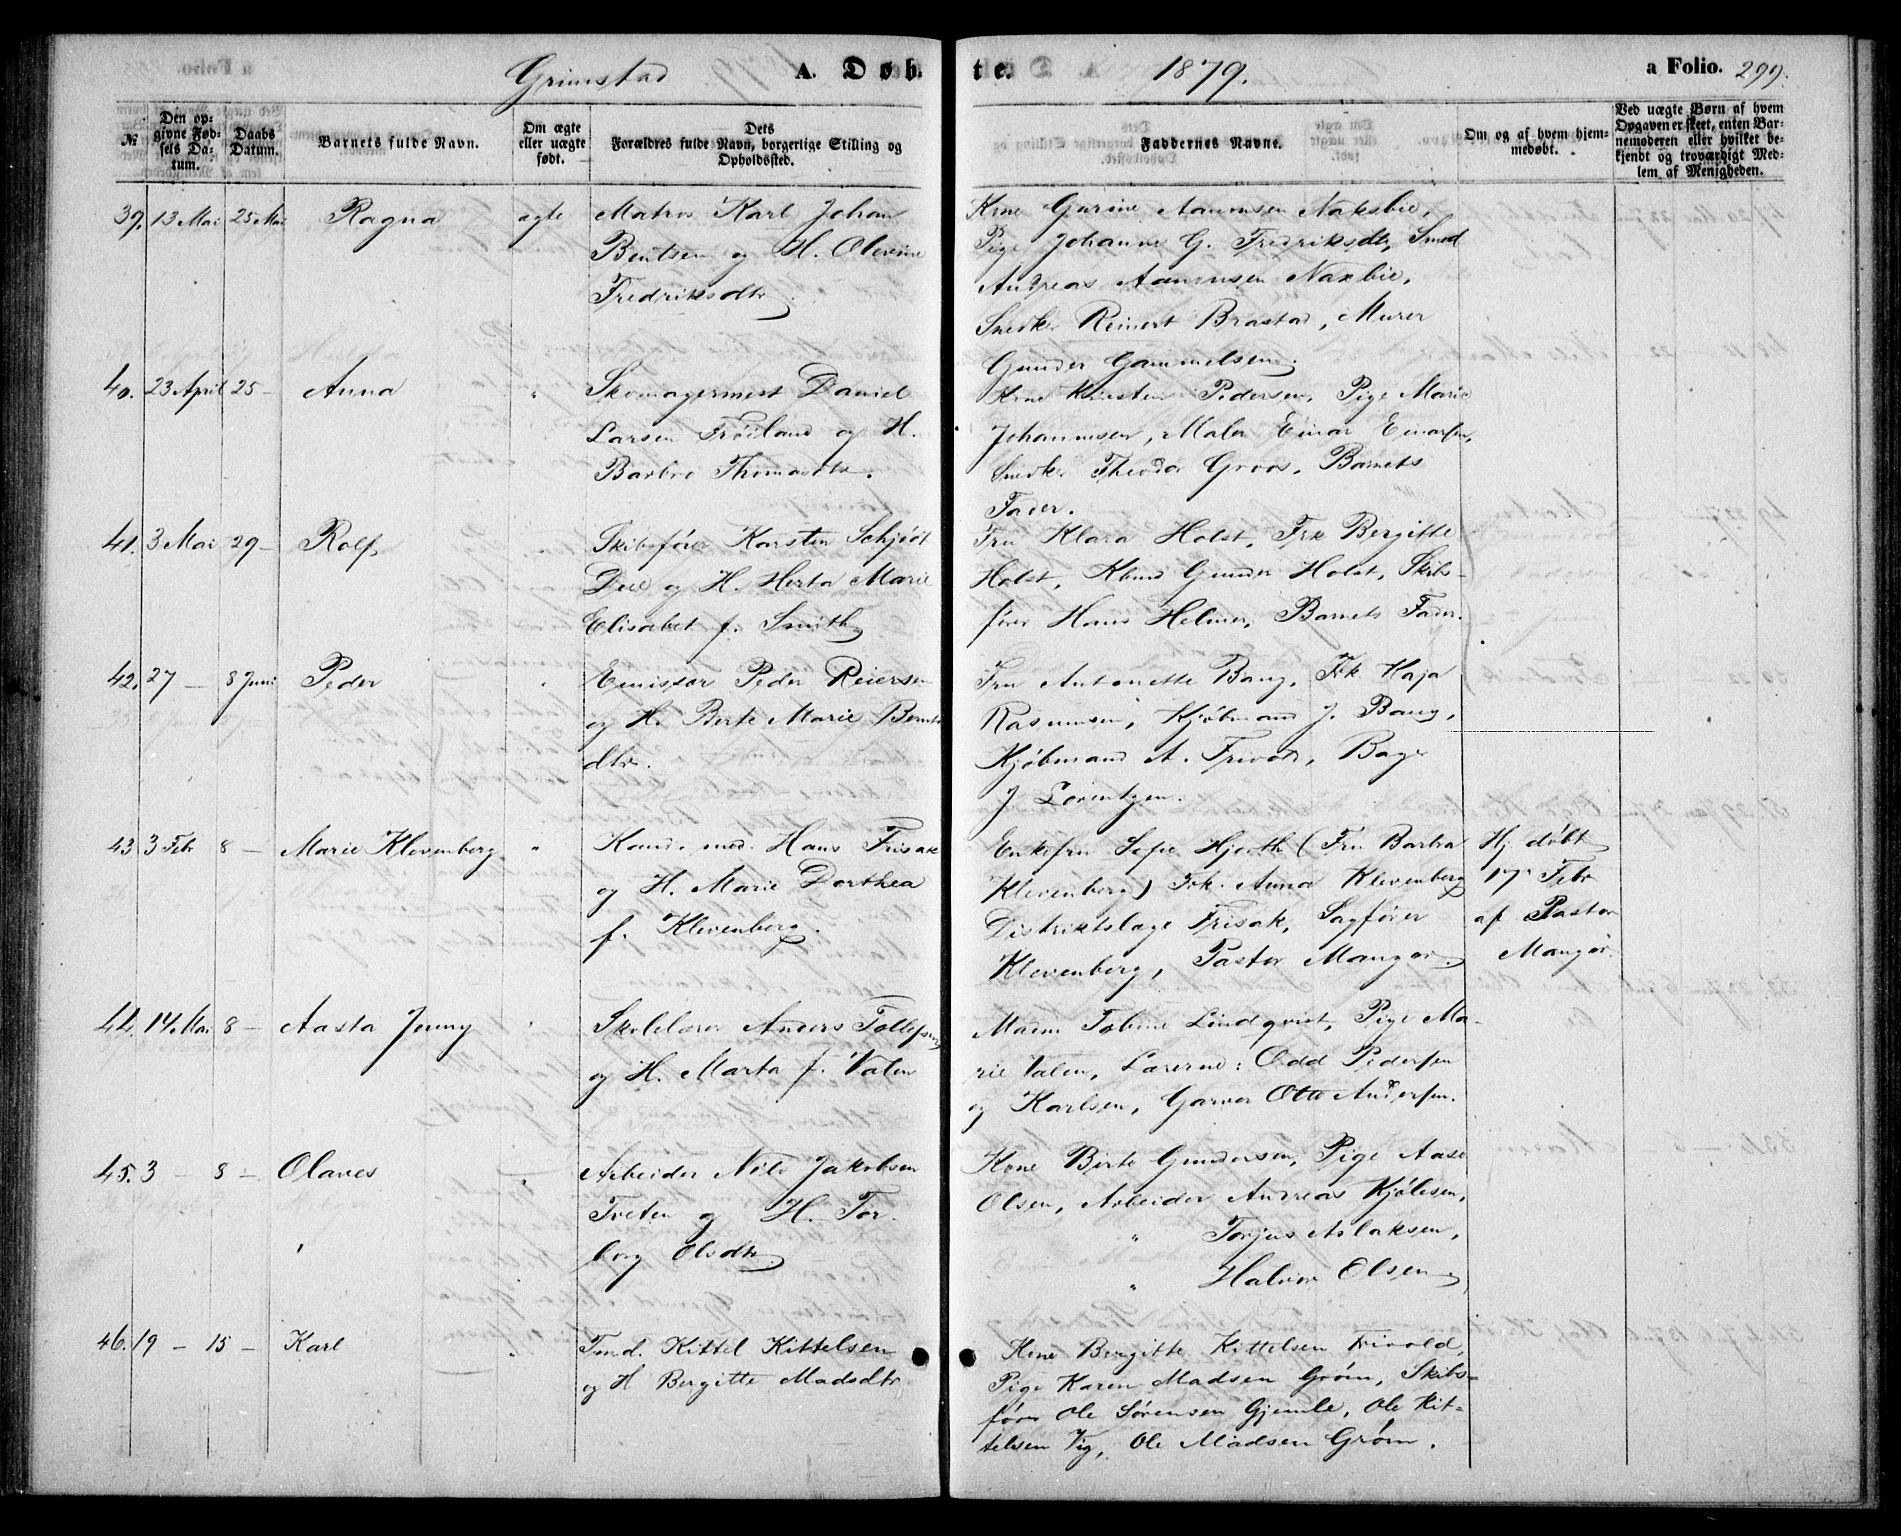 Grimstad A. Døb-te. 1879. a Folio. 299.
№ Den opgivne Fødsels Datum. Daabs Datum. Barnets fulde Navn. Om ægte eller uægte født. Dets Forældres fulde Navn, borgerlige Stilling og Opholdssted. Faddernes Navne. Om og af hvem hjemmedøbt. Ved uægte Børn af hvem Opgaven er skeet, enten Barnemoderen eller hvilket bekjendt og troværdigt Medlem af Menigheden.
39. 13 Mai 25 Mai Ragna ægte Matros Karl Johan
Bentsen og H. Olevine
Fredriksdtr.
Kone Gurine Aanonsen Naksbie,
Pige Johanne G. Fredriksdtr, Smed
Andreas Aanonsen Naxbie,
Snedker Reinert Brastad, Murer
Gunder Gammelsen.
40. 23 April 25 – Anna " Skomagermest Daniel
Larsen Frøiland og H.
Barbro Thomasdtr.
Kone Kirsten Pedersen, Pige Marie
Johannesen, Maler Einar Einarsen,
Snedk. Theodor Groos, Barnets
Fader.
41. 3 Mai 29 – Rolf " Skibsfører Karsten Schjøt
Due og H. Herta Marie
Elisabet f. Smith
Fru Klara Holst, Frk Bergitte
Holst, Kbmd Gunder Holst, Skibs-
fører Hans Helmer, Barnets Fader.
42. 27 – 8 Juni Peder " Emissær Peder Reiersen
og H. Berte Marie Bernts
dtr.
Fru Antonette Bang, Frk Kaja
Rasmussen, Kjøbmand J. Bang,
Kjøbmand A. Frivold, Bager
J. Lorentzen.
43 3 Febr 8 – Marie Klevenberg " Kand. med. Hans Frisak
og H. Marie Dorthea
f. Klevenberg.
Enkefru Sofie Hjorth (Fru Barbra
Klevenberg) Frk. Anna Klevenberg
Distriktslæge Frisak, Sagfører
Klevenberg, Pastor Mangor.
Hj. døbt
17 Febr
af Pastor
Mangor.
44. 14 Mai 8 – Aasta Jenny " Skolelærer Anders Tollefsen
og H. Marta f. Valen
Mad­m Tobine Lindqvist, Pige Ma-
rie Valen, Lærerne: Odd Pedersen
og Karlsen, Garver Otto Andersen.
45. 3 – 8 – Olaves " Arbeider Nils Jakobsen
Tveten og H. Tor-
borg Olsdtr.
Kone Birte Gundersen, Pige Aase
Olsen, Arbeider Andreas Kjølesen,
" Torjus Aslaksen,
" Halvor Olsen,
46. 19 – 15 – Karl " Tmd. Kittel Kittelsen
og H Bergitte Madsdtr
Kone Bergitte Kittelsen Frivold,
Pige Karen Madsen Grøm, Skibs-
fører Ole Sørensen Gjemle, Ole Kit-
telsen Vig, Ole Madsen Grøm.